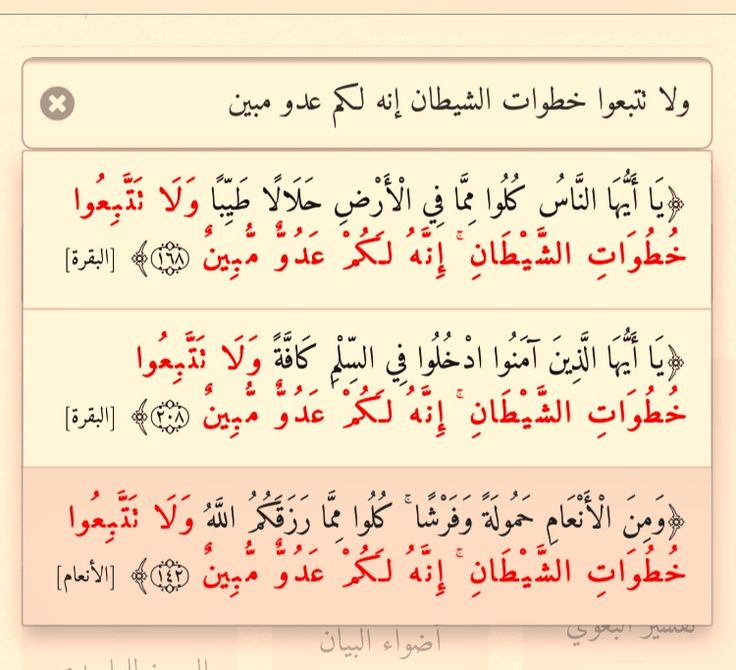 ولا تتبعوا خطوات الشيطان إنه لكم عدو مبين
﴿يَا أَيُّهَا النَّاسُ كُلُوا مِمَّا فِي الْأَرْضِ حَلَالًا طَيِّبًا وَلَا تَتَّبِعُوا
خُطُوَاتِ الشَّيْطَانِ ۚ إِنَّهُ لَكُمْ عَدُوٌّ مُّبِينٌ ۝١٦٨﴾ [البقرة]
﴿يَا أَيُّهَا الَّذِينَ آمَنُوا ادْخُلُوا فِي السِّلْمِ كَافَّةً وَلَا تَتَّبِعُوا
خُطُوَاتِ الشَّيْطَانِ ۚ إِنَّهُ لَكُمْ عَدُوٌّ مُّبِينٌ ۝٢٠٨﴾ [البقرة]
﴿وَمِنَ الْأَنْعَامِ حَمُولَةً وَفَرْشًا ۚ كُلُوا مِمَّا رَزَقَكُمُ اللَّهُ وَلَا تَتَّبِعُوا
خُطُوَاتِ الشَّيْطَانِ ۚ إِنَّهُ لَكُمْ عَدُوٌّ مُّبِينٌ ۝١٤٢﴾ [الأنعام]
تفسير البغوي
أضواء البيان